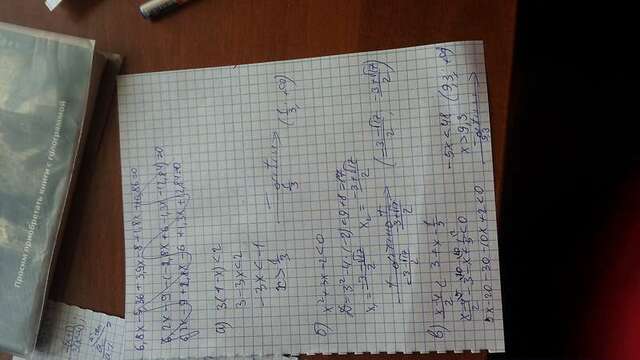 Просим приобретать книги с голограммой
6,2x - 9 + 2,8x - 6 + 1,3x + 12,84 = 0
а) 3(1-x) < 2
3 - 3x < 2
-3x < -1
x > 1/3
- +
1/3
(1/3, +∞)
б) x² + 3x - 2 < 0
D = 3² - 4·(-2) = 9 + 8 = 17
x₁ = (-3-√17)/2 x₂ = (-3+√17)/2
+ - +
(-3-√17)/2 (-3+√17)/2
((-3-√17)/2, (-3+√17)/2)
в) (x-4)/2 < 3 + x - 1/5
(x-4)/2 - 3 - x + 1/5 < 0
5x - 20 - 30 - 10x + 2 < 0
-5x < 48 (9,3, +∞)
x > 9,3
9,3